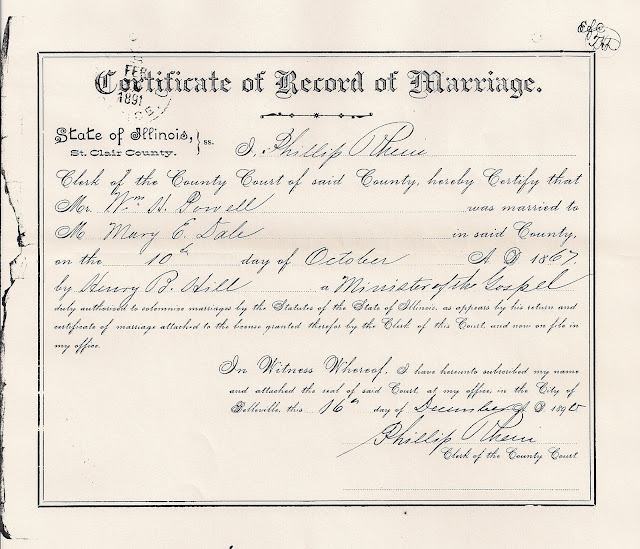 FEB
1891
Certificate of Record of Marriage.
State of Illinois, } ss.
St. Clair County.
I, Phillip Rhein
Clerk of the County Court of said County, hereby Certify that
Mr. Wm H. Powell was married to
M Mary E. Dale in said County,
on the 10th day of October A. D. 1867,
by Henry B. Hill a Minister of the Gospel
duly authorized to solemnize marriages by the Statutes of the State of Illinois, as appears by his return and
certificate of marriage attached to the license granted therefor by the Clerk of this Court, and now on file in
my office.
In Witness Whereof, I have hereunto subscribed my name
and attached the seal of said Court, at my office, in the City of
Belleville, this 16th day of December A. D. 1890
Phillip Rhein
Clerk of the County Court